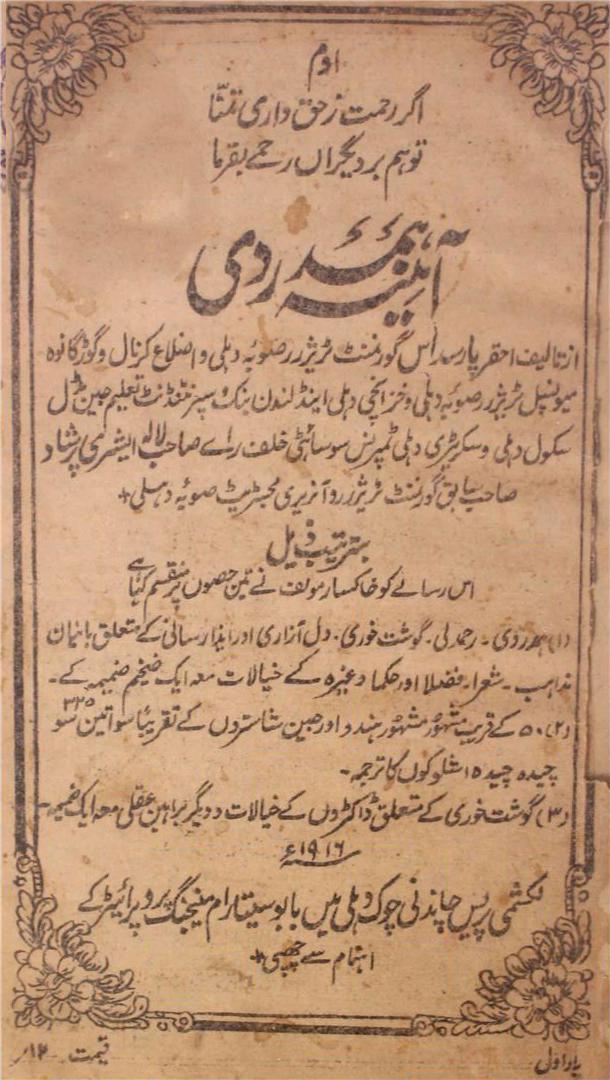 اوم
اگر رحمت ز حق داری تمنّا
تو ہم بر دیگراں رحمے بفرما
آئینہ ہمدردی
از تالیف احقر پارسداس گورنمنٹ ٹریژرر صوبہ دہلی و اضلاع کرنال و گوڑگانوہ
میونسپل ٹریژرر صوبہ دہلی و خزانچی دہلی اینڈ لندن بنک و سپرنٹنڈنٹ تعلیم جین مڈل
سکول دہلی و سکریٹری دہلی ٹمپرنس سوسائٹی خلف رائے صاحب لالہ ایشری پرشاد
صاحب سابق گورنمنٹ ٹریژرر و آنریری مجسٹریٹ صوبہ دہلی +
بترتیب ذیل
اس رسالے کو خاکسار مولف نے تین حصوں پر منقسم کیا ہے
(۱) ہمدردی۔ رحمدلی۔ گوشت خوری۔ دل آزاری اور ایذا رسانی کے متعلق بانیان
مذاہب۔ شعرا۔ فضلا اور حکماء وغیرہ کے خیالات معہ ایک ضخیم ضمیمہ کے۔
(۲) ۵۰ کے قریب مشہور مشہور ہندو اور جین شاستروں کے تقریباً سوا تین سو ۳۲۵
چیدہ چیدہ اشلوکوں کا ترجمہ۔
(۳) گوشت خوری کے متعلق ڈاکٹروں کے خیالات و دیگر براہین عقلی معہ ایک ضمیمہ۔
۱۹۱۶ء
لکشمی پریس چاندنی چوک دہلی میں بابو سیتا رام منیجنگ پروپرائیٹر کے
اہتمام سے چھپی +
بار اول
قیمت ۱۲؍